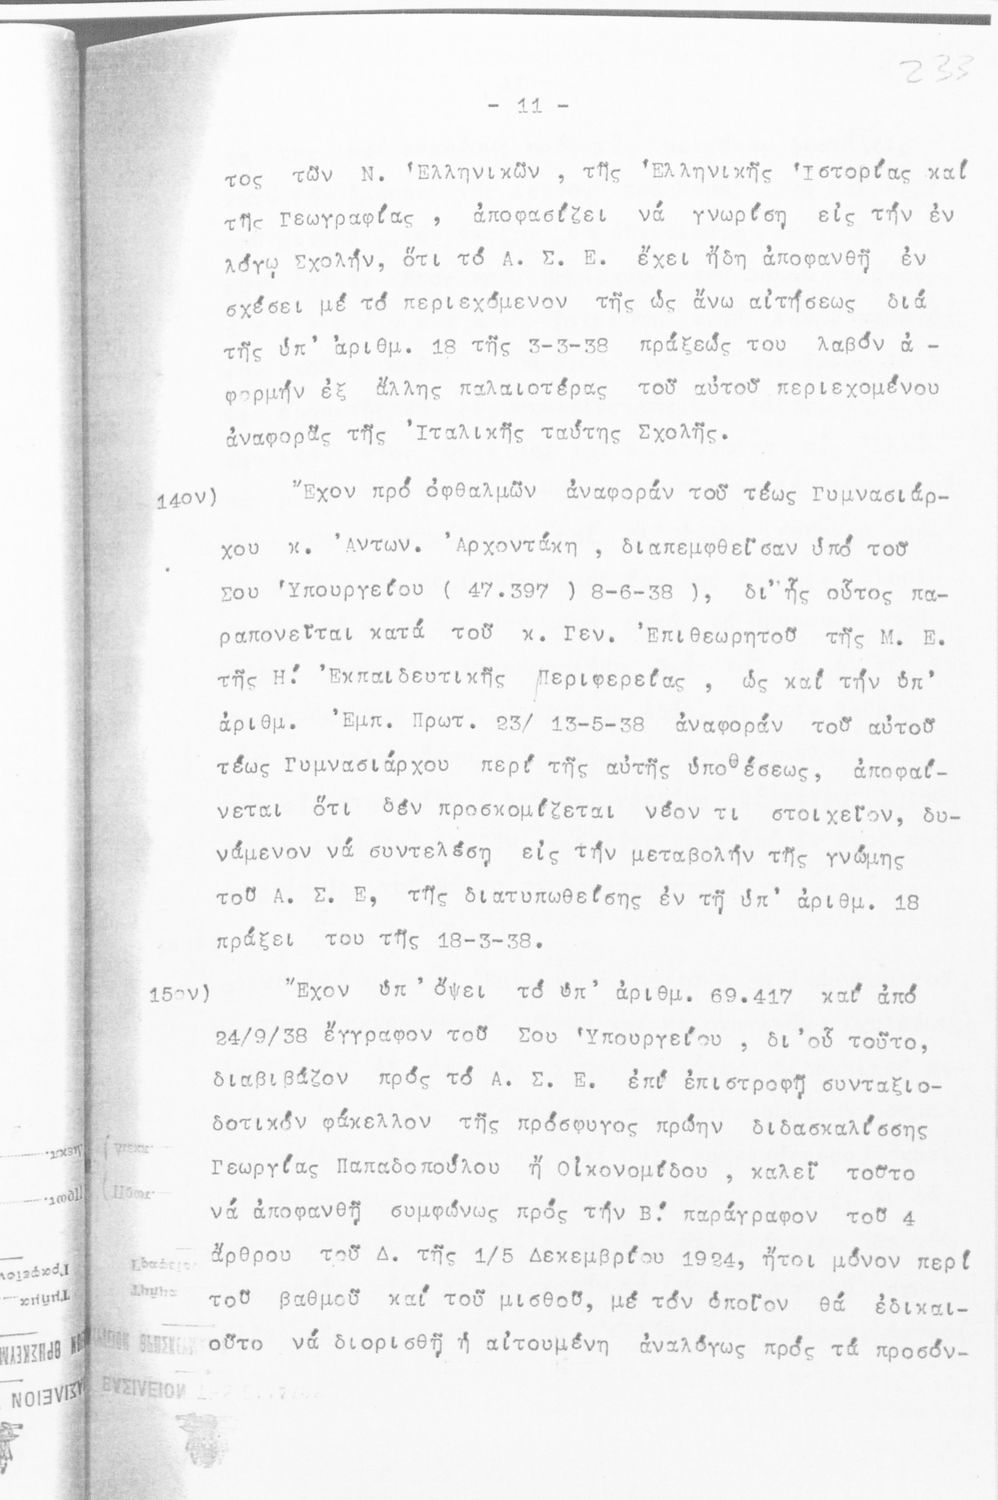 233
- 11 -
τος τῶν Ν. Ἑλληνικῶν , τῆς Ἑλληνικῆς Ἱστορίας καί
τῆς Γεωγραφίας , ἀποφασίζει νά γνωρίσῃ εἰς τήν ἐν
λόγῳ Σχολήν, ὅτι τό Α. Σ. Ε. ἔχει ἤδη ἀποφανθῆ ἐν
σχέσει μέ τό περιεχόμενον τῆς ὡς ἄνω αἰτήσεως διά
τῆς ὑπ' ἀριθμ. 18 τῆς 3-3-38 πράξεώς του λαβόν ἀ -
φορμήν ἐξ ἄλλης παλαιοτέρας τοῦ αὐτοῦ περιεχομένου
ἀναφορᾶς τῆς Ἰταλικῆς ταύτης Σχολῆς.
14ον) Ἔχον πρό ὀφθαλμῶν ἀναφοράν τοῦ τέως Γυμνασιάρ-
χου κ. Ἀντων. Ἀρχοντάκη , διαπεμφθεῖσαν ὑπό τοῦ
Σου Ὑπουργείου ( 47.397 ) 8-6-38 ), δι' ἧς οὗτος πα-
ραπονεῖται κατά τοῦ κ. Γεν. Ἐπιθεωρητοῦ τῆς Μ. Ε.
τῆς Η! Ἐκπαιδευτικῆς Περιφερείας , ὡς καί τήν ὑπ'
ἀριθμ. Ἐμπ. Πρωτ. 23/ 13-5-38 ἀναφοράν τοῦ αὐτοῦ
τέως Γυμνασιάρχου περί τῆς αὐτῆς ὑποθέσεως, ἀποφαί-
νεται ὅτι δέν προσκομίζεται νέον τι στοιχεῖον, δυ-
νάμενον νά συντελέσῃ εἰς τήν μεταβολήν τῆς γνώμης
τοῦ Α. Σ. Ε, τῆς διατυπωθείσης ἐν τῇ ὑπ' ἀριθμ. 18
πράξει του τῆς 18-3-38.
15ον) Ἔχον ὑπ' ὄψει τό ὑπ' ἀριθμ. 69.417 καί ἀπό
24/9/38 ἔγγραφον τοῦ Σου Ὑπουργείου , δι 'οὗ τοῦτο,
διαβιβάζον πρός τό Α. Σ. Ε. ἐπί ἐπιστροφῇ συνταξιο-
δοτικόν φάκελλον τῆς πρόσφυγος πρώην διδασκαλίσσης
Γεωργίας Παπαδοπούλου ἤ Οἰκονομίδου , καλεῖ τοῦτο
νά ἀποφανθῇ συμφώνως πρός τήν Β! παράγραφον τοῦ 4
ἄρθρου τοῦ Δ. τῆς 1/5 Δεκεμβρίου 1924, ἤτοι μόνον περί
τοῦ βαθμοῦ καί τοῦ μισθοῦ, μέ τόν ὁποῖον θά ἐδικαι-
οῦτο νά διορισθῇ ἡ αἰτουμένη ἀναλόγως πρός τά προσόν-
ΒΑΣΙΛΕΙΟΝ